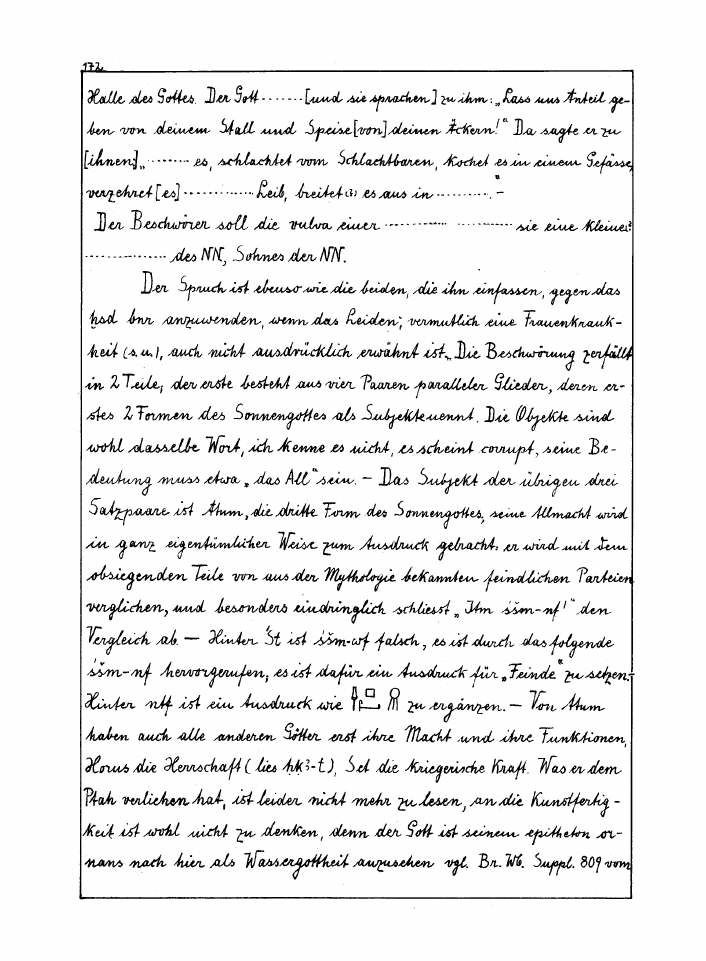 172
Halle des Gottes. Der Gott ······· [und sie sprachen] zu ihm: „Lass uns Anteil ge-
ben von deinem Stall und Speise [von] deinen Äckern!" Da sagte er zu
[ihnen:] „········ es, schlachtet vom Schlachtbaren, kochet es in einem Gefässe,
verzehret [es] ············· Leib, breitet (?) es aus in ·········." –
Der Beschwörer soll die vulva einer ·············· ············ sie eine kleine?
·············· des NN, Sohnes der NN.
Der Spruch ist ebenso wie die beiden, die ihn einfassen, gegen das
ḥsd bnr anzuwenden, wenn das Leiden, vermutlich eine Frauenkrank-
heit (s.u.), auch nicht ausdrücklich erwähnt ist. Die Beschwörung zerfällt
in 2 Teile, der erste besteht aus vier Paaren paralleler Glieder, deren er-
stes 2 Formen des Sonnengottes als Subjekte nennt. Die Objekte sind
wohl dasselbe Wort, ich kenne es nicht, es scheint corrupt, seine Be-
deutung muss etwa „das All" sein. – Das Subjekt der übrigen drei
Satzpaare ist Atum, die dritte Form des Sonnengottes, seine Allmacht wird
in ganz eigentümlicher Weise zum Ausdruck gebracht: er wird mit dem
obsiegenden Teile von aus der Mythologie bekannten feindlichen Parteien
verglichen, und besonders eindringlich schliesst „Itm śšm-nf!" den
Vergleich ab. — Hinter Śt ist śšm-wf falsch, es ist durch das folgende
śšm-nf hervorgerufen, es ist dafür ein Ausdruck für „Feinde" zu setzen. –
Hinter ntf ist ein Ausdruck wie zu ergänzen. – Von Atum
haben auch alle anderen Götter erst ihre Macht und ihre Funktionen,
Horus die Herrschaft (lies ḥḳꜣ-t), Set die kriegerische Kraft. Was er dem
Ptah verliehen hat, ist leider nicht mehr zu lesen, an die Kunstfertig-
keit ist wohl nicht zu denken, denn der Gott ist seinem epitheton or-
nans nach hier als Wassergottheit anzusehen vgl. Br. Wb. Suppl. 809 vom